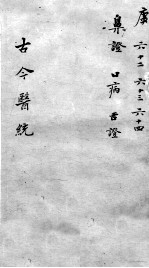 虞 六十二 六十三 六十四
鼻證 口病 舌證
古今醫統